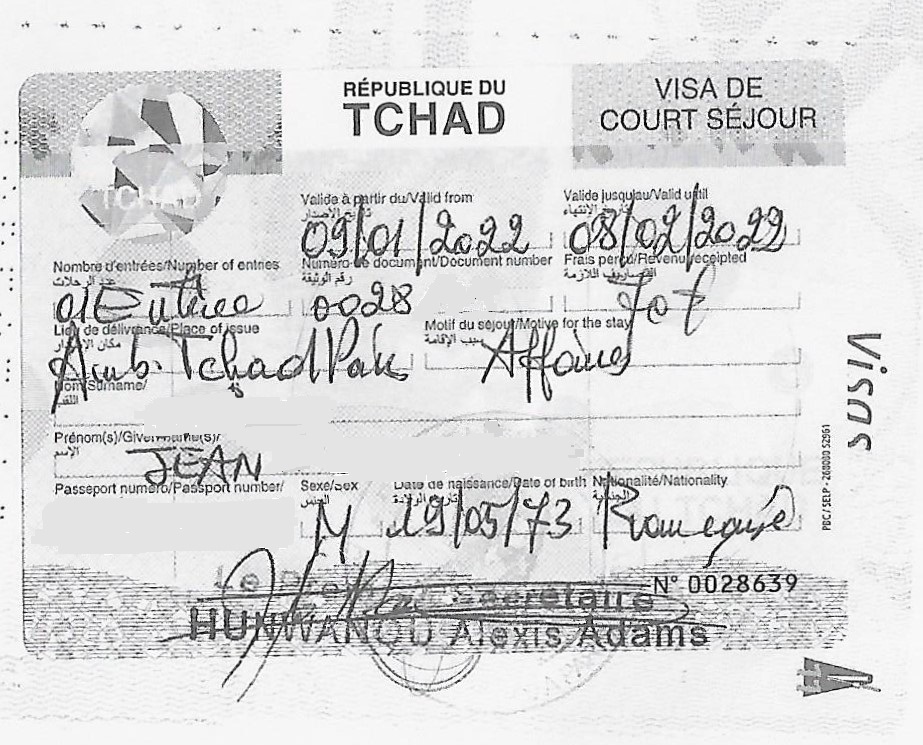 RÉPUBLIQUE DU
TCHAD
VISA DE
COURT SÉJOUR
TCHAD
Valide à partir du/Valid from
تاريخ الإصدار
09/01/2022
Valide jusqu'au/Valid until
تاريخ الإنتهاء
08/02/2022
Nombre d'entrées/Number of entries
عدد الرحلات
01 Entrée
Numéro de document/Document number
رقم الوثيقة
0028
Frais perçu/Revenu receipted
المصاريف اللازمة
70 €
Lieu de délivrance/Place of issue
مكان الإصدار
Amb. Tchad
Motif du séjour/Motive for the stay
سبب الإقامة
Affaires
Nom/Surname/
اللقب
Prénom(s)/Given name(s)/
الإسم
JEAN
Passeport numéro/Passport number/
Sexe/Sex
الجنس
M
Date de naissance/Date of birth
تاريخ الولادة
19/05/73
Nationalité/Nationality
الجنسية
Française
N° 0028639
Le Premier Secrétaire
HUNWANOU Alexis Adams
VISAS
PBC/SELP - 268000 52961